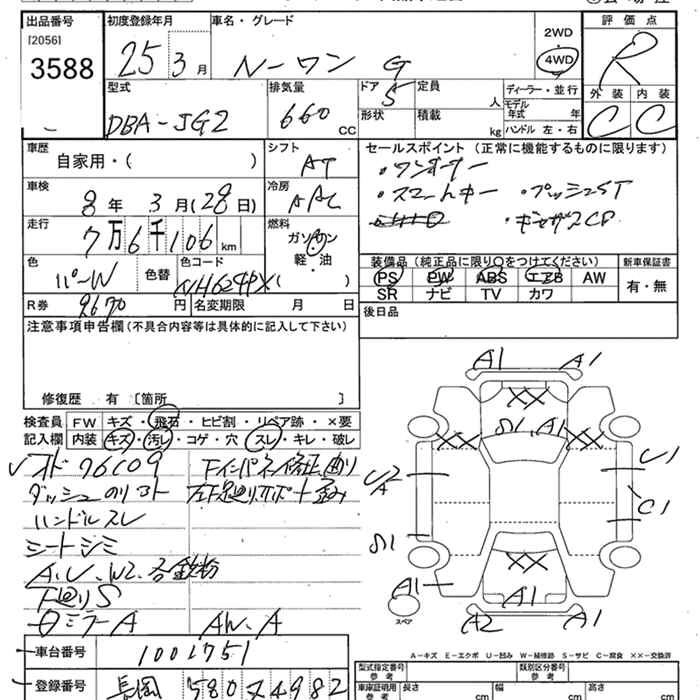 出品番号 初度登録年月 車名・グレード 評価点
[2056]
3588
25 3月 N-ワン G 2WD 4WD R
型式 排気量 ドア 定員 ディーラー・並行 外装 内装
DBA-JG2 660 CC 5 人 モデル年式 年 C C
形状 積載 kg ハンドル 左・右
車歴 シフト セールスポイント (正常に機能するものに限ります)
自家用・( ) AT ・ワンオーナー
車検 冷房 ・スマートキー ・プッシュST
8年 3月(28日) AAC
走行 燃料
7万6千106km ガソリン 軽・油 ( )
色 色替 色コード 装備品(純正品に限り○をつけてください) 新車保証書
パールW NH624PX PS PW ABS エアB AW 有・無
SR ナビ TV カワ
R券 9670円 名変期限 月 日 後日品
注意事項申告欄(不具合内容等は具体的に記入して下さい)
修復歴 有 〔箇所 〕
検査員記入欄 FW キズ・飛石・ヒビ割・リペア跡・×要
内装 キズ・汚レ・コゲ・穴・スレ・キレ・破レ
ダッシュのリコト
ハンドルスレ
シートシミ
A.U.W2.各鉄粉
下廻りS
ミラーA AW.A
A1 A1
XX
S1 A1
XX XX
U2 A U1
C1
S1
XX
A1 A1
スペア
A2 A1
A-キズ E-エクボ U-凹み W-補修跡 S-サビ C-腐食 XX-交換済
車台番号 1001751
型式指定番号 参考 類別区分番号 参考
登録番号 長岡 580 4982
車庫証明用 参考 長さ cm 幅 cm 高さ cm